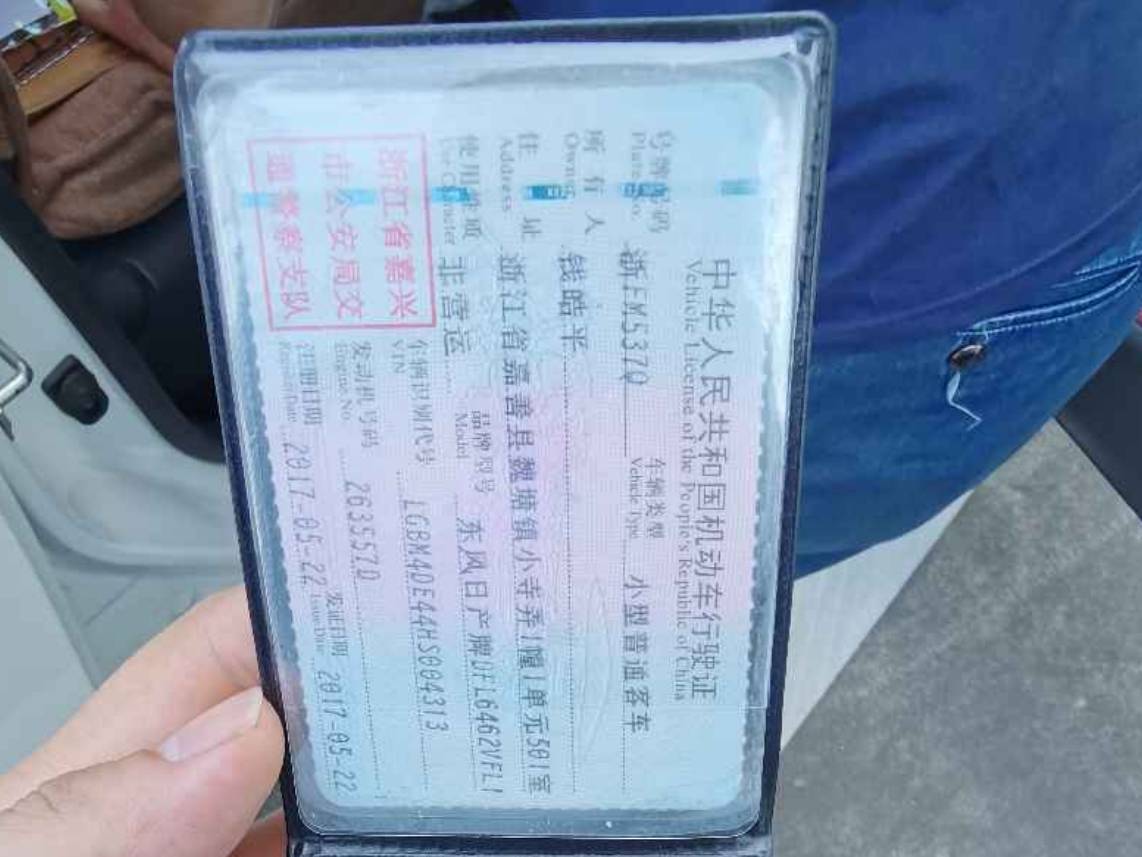 中华人民共和国机动车行驶证
Vehicle License of the People's Republic of China
号牌号码 浙FM537Q 车辆类型 小型普通客车
Plate No. Vehicle Type
所有人 钱皓平
Owner
住址 浙江省嘉善县魏塘镇小寺弄1幢1单元501室
Address
使用性质 非营运 品牌型号 东风日产牌DFL6462VFL1
Use Character Model
浙江省嘉兴
市公安局交
通警察支队
车辆识别代号 LGBM4DE44HS004313
VIN
发动机号码 263557D
Engine No.
注册日期 2017-05-22 发证日期 2017-05-22
Register Date Issue Date